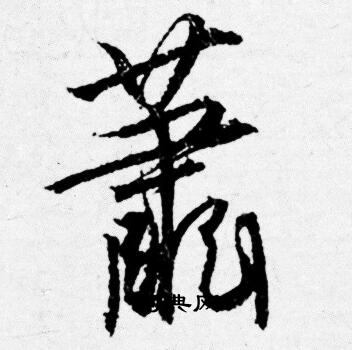 蕭
典网